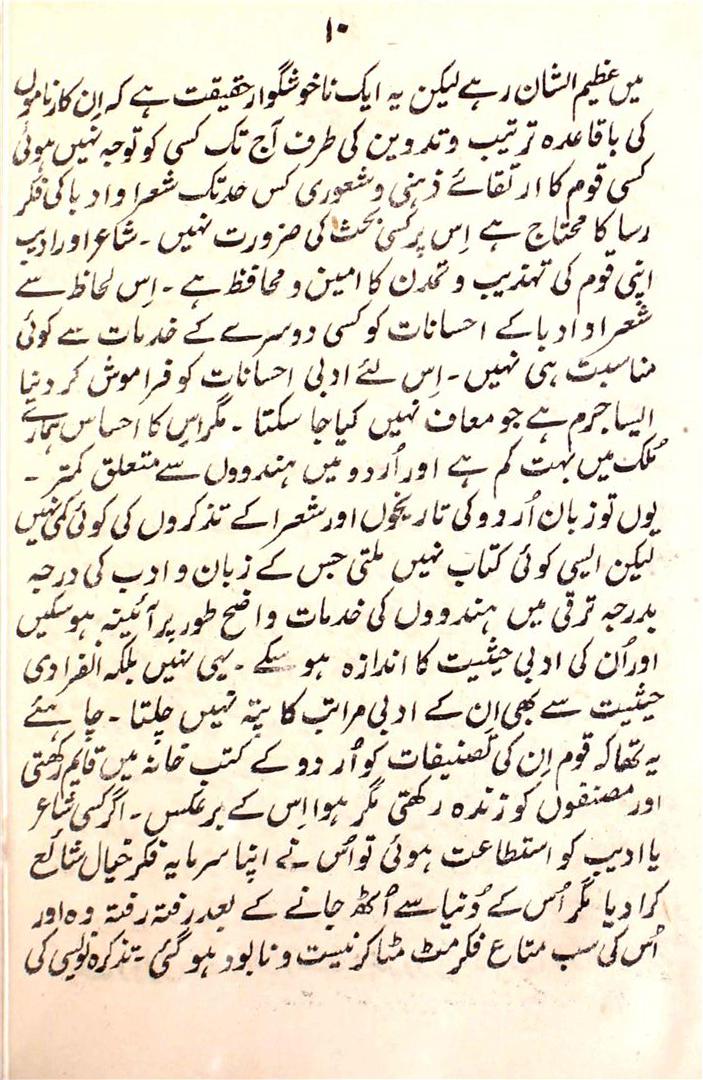 ۱۰
میں عظیم الشان رہے لیکن یہ ایک ناخوشگوار حقیقت ہے کہ اِن کارناموں
کی باقاعدہ ترتیب و تدوین کی طرف آج تک کسی کو توجہ نہیں ہوئی
کسی قوم کا ارتقائے ذہنی و شعوری کس حد تک شعرا و ادبا کی فکر
رسا کا محتاج ہے اِس پر کسی بحث کی ضرورت نہیں ۔ شاعر اور ادیب
اپنی قوم کی تہذیب و تمدن کا امین و محافظ ہے ۔ اِس لحاظ سے
شعرا و ادبا کے احسانات کو کسی دوسرے کے خدمات سے کوئی
مناسبت ہی نہیں ۔ اِس لئے ادبی احسانات کو فراموش کر دینا
ایسا جرم ہے جو معاف نہیں کیا جا سکتا ۔ مگر اس کا احساس ہمارے
مُلک میں بہت کم ہے اور اُردو میں ہندووں سے متعلق کمتر ۔
یوں تو زبان اُردو کی تاریخوں اور شعرا کے تذکروں کی کوئی کمی نہیں
لیکن ایسی کوئی کتاب نہیں ملتی جس کے زبان و ادب کی درجہ
بدرجہ ترقی میں ہندووں کی خدمات واضح طور پر آئینہ ہو سکیں
اور اُن کی ادبی حیثیت کا اندازہ ہو سکے ۔ یہی نہیں بلکہ انفرادی
حیثیت سے بھی اِن کے ادبی مراتب کا پتہ نہیں چلتا ۔ چاہئے
یہ تھا کہ قوم اِن کی تصنیفات کو اُردو کے کتب خانہ میں قایم رکھتی
اور مصنفوں کو زندہ رکھتی مگر ہوا اِس کے برعکس ۔ اگر کسی شاعر
یا ادیب کو استطاعت ہوئی تو اُس نے اپنا سرمایہ فکر خیال شائع
کرا دیا مگر اُس کے دُنیا سے اُٹھ جانے کے بعد رفتہ رفتہ وہ اور
اُس کی سب متاع فکر مٹ مٹا کر نیست و نابود ہو گئی ۔ تذکرہ نویسی کی